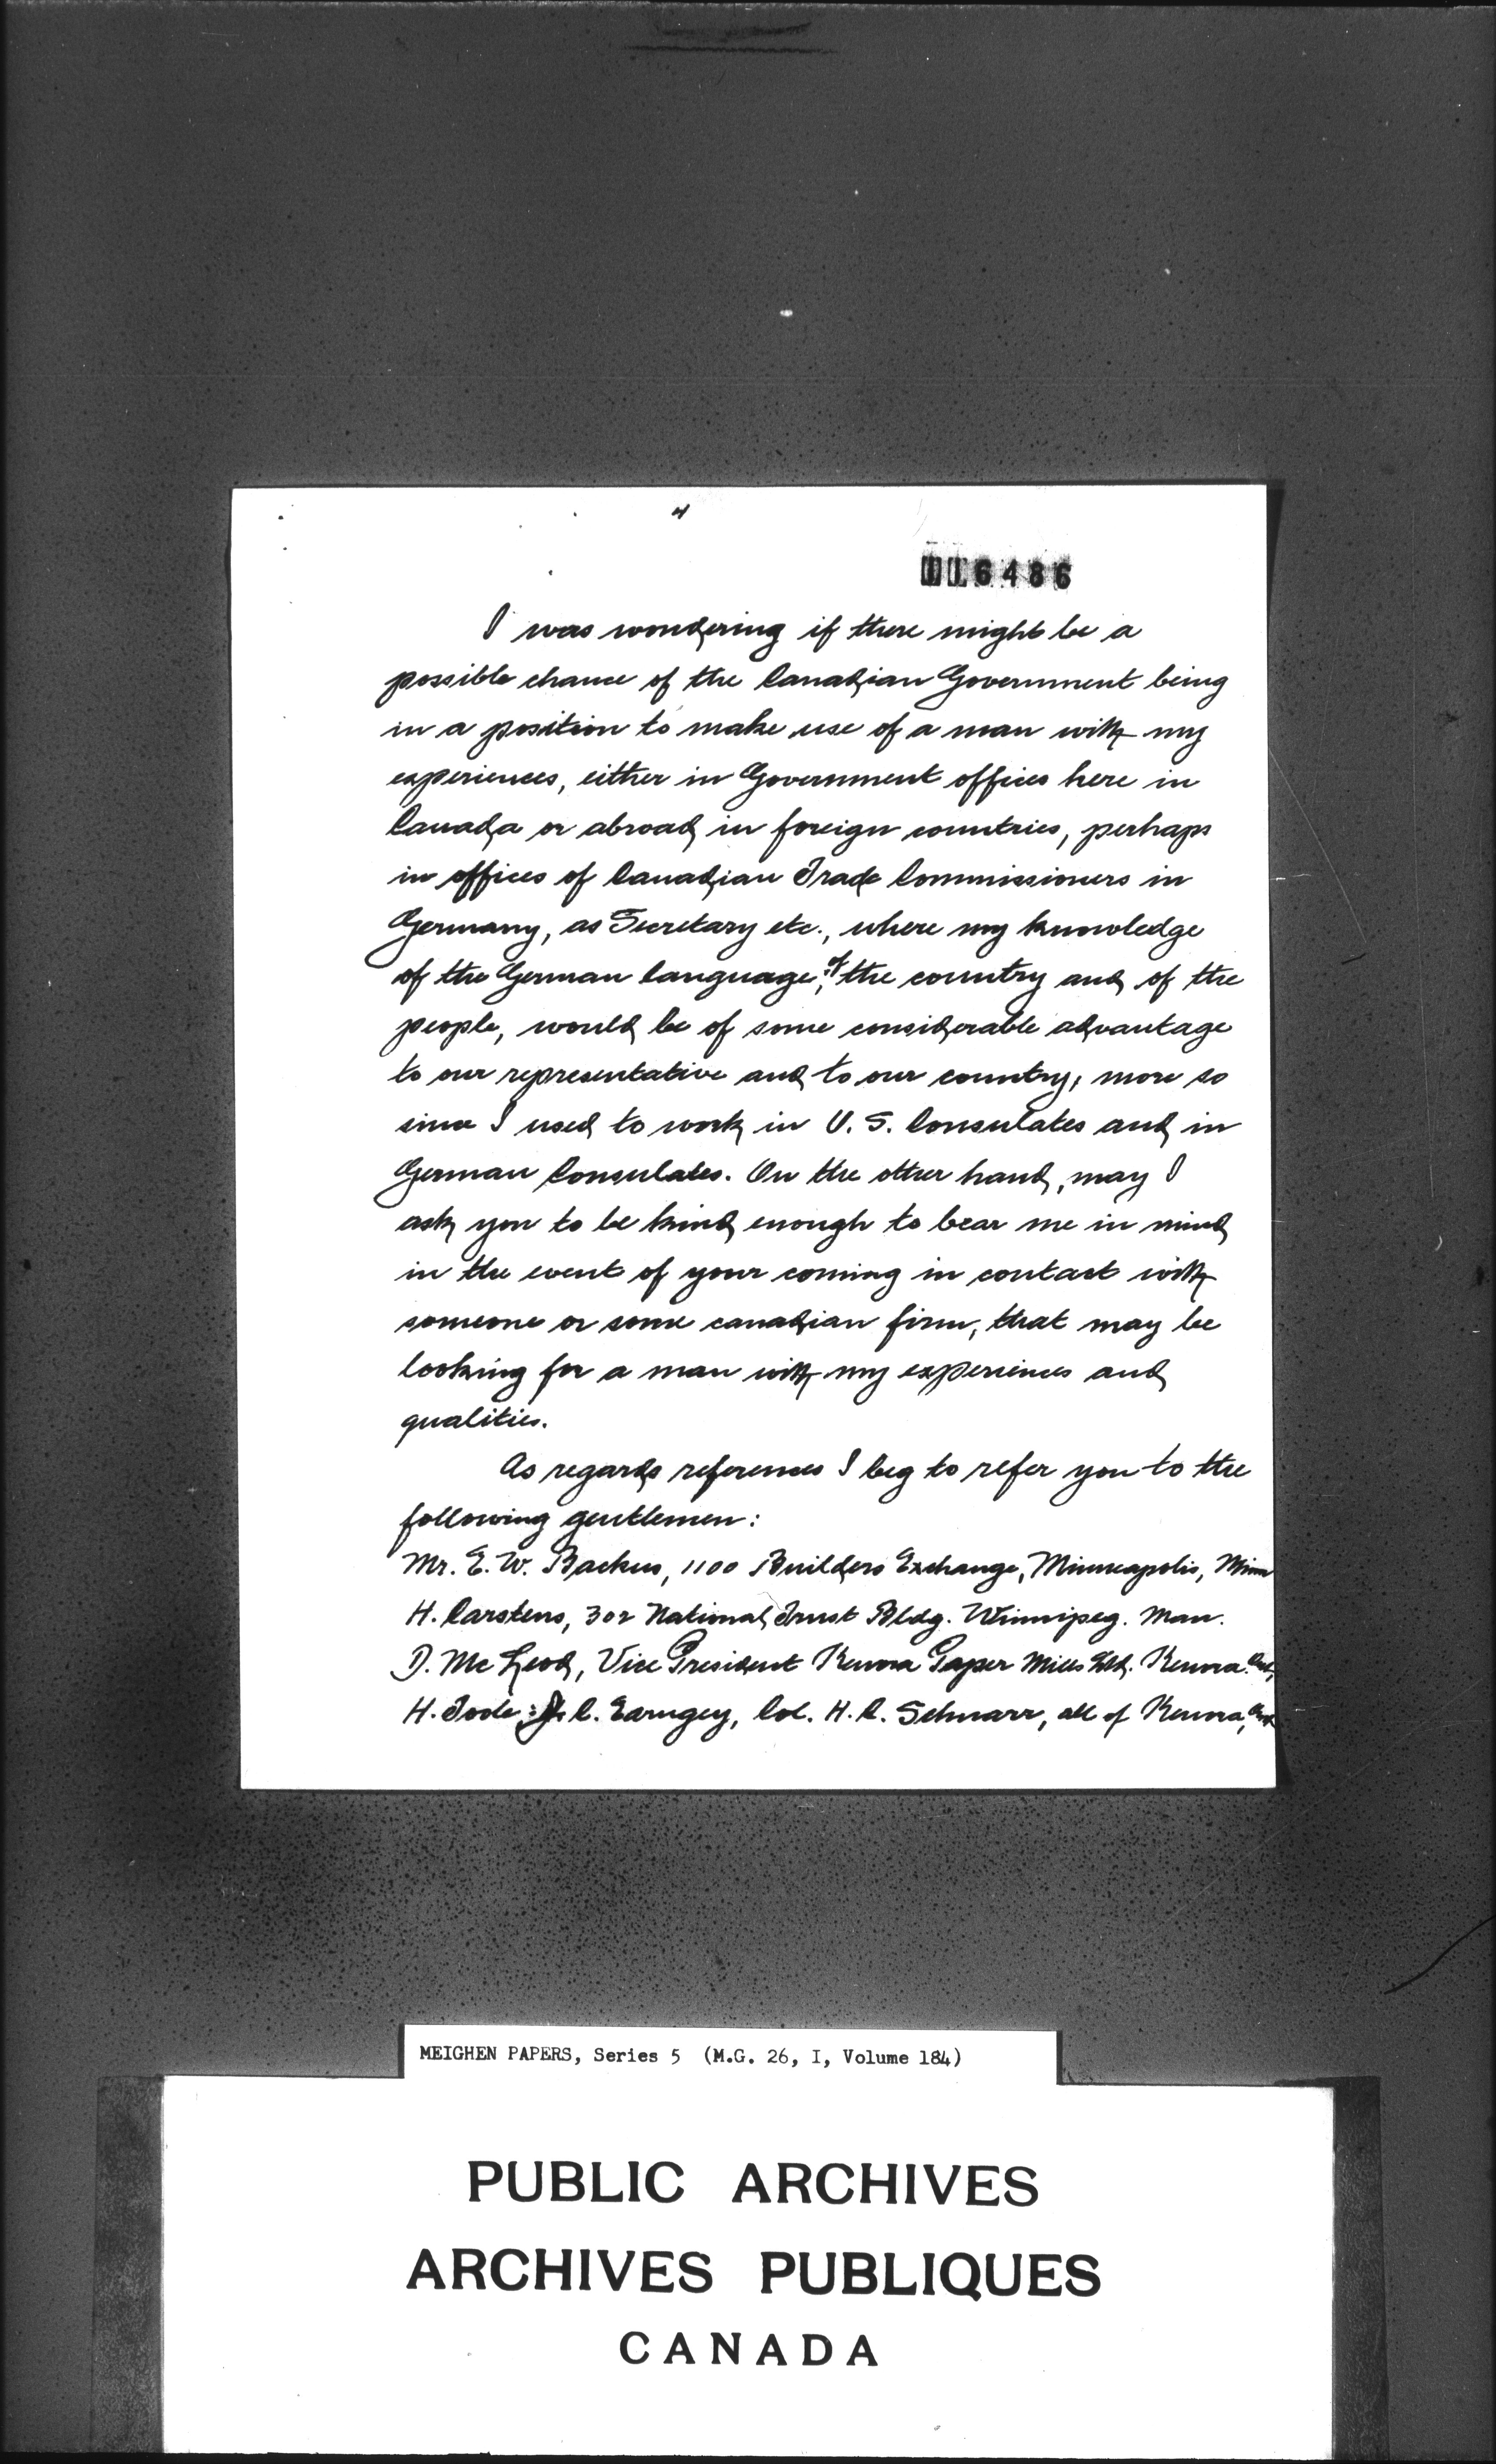 4
116486
I was wondering if there might be a
possible chance of the Canadian Government being
in a position to make use of a man with my
experiences, either in Government offices here in
Canada or abroad in foreign countries, perhaps
in offices of Canadian Trade Commissioners in
Germany, as Secretary etc., where my knowledge
of the German language, of the country and of the
people, would be of some considerable advantage
to our representative and to our country, more so
since I used to work in U. S. Consulates and in
German Consulates. On the other hand, may I
ask you to be kind enough to bear me in mind
in the event of your coming in contact with
someone or some canadian firm, that may be
looking for a man with my experiences and
qualities.
As regards references I beg to refer you to the
following gentlemen:
Mr. E. W. Backus, 1100 Builders Exchange, Minneapolis, Minn
H. Carstens, 302 National Trust Bldg. Winnipeg. Man.
D. Mc Leod, Vice President Kenora Paper Mills Ltd. Kenora. Ont,
H. C. Earngey, Col. H. A. Schnarr, all of Kenora, Ont
MEIGHEN PAPERS, Series 5 (M.G. 26, I, Volume 184)
PUBLIC ARCHIVES
ARCHIVES PUBLIQUES
CANADA